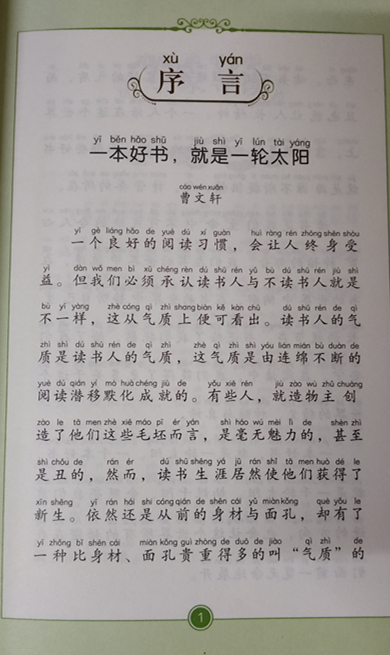 xù yán
序言
yī běn hǎo shū jiù shì yī lún tài yáng
一本好书，就是一轮太阳
cáo wén xuān
曹文轩
yí gè liáng hǎo de yuè dú xí guàn huì ràng rén zhōng shēn shòu
一个良好的阅读习惯，会让人终身受
yì dàn wǒ men bì xū chéng rèn dú shū rén yǔ bù dú shū rén jiù shì
益。但我们必须承认读书人与不读书人就是
bù yí yàng zhè cóng qì zhì shang biàn kě kàn chū dú shū rén de qì
不一样，这从气质上便可看出。读书人的气
zhì shì dú shū rén de qì zhì zhè qì zhì shì yóu lián mián bú duàn de
质是读书人的气质，这气质是由连绵不断的
yuè dú qián yí mò huà chéng jiù de yǒu xiē rén jiù zào wù zhǔ chuàng
阅读潜移默化成就的。有些人，就造物主创
zào le tā men zhè xiē máo pī ér yán shì háo wú mèi lì de shèn zhì
造了他们这些毛坯而言，是毫无魅力的，甚至
shì chǒu de rán ér dú shū shēng yá jū rán shǐ tā men huò dé le
是丑的，然而，读书生涯居然使他们获得了
xīn shēng yī rán hái shi cóng qián de shēn cái yǔ miàn kǒng què yǒu le
新生。依然还是从前的身材与面孔，却有了
yì zhǒng bǐ shēn cái miàn kǒng guì zhòng de duō de jiào qì zhì de
一种比身材、面孔貴重得多的叫“气质”的
1